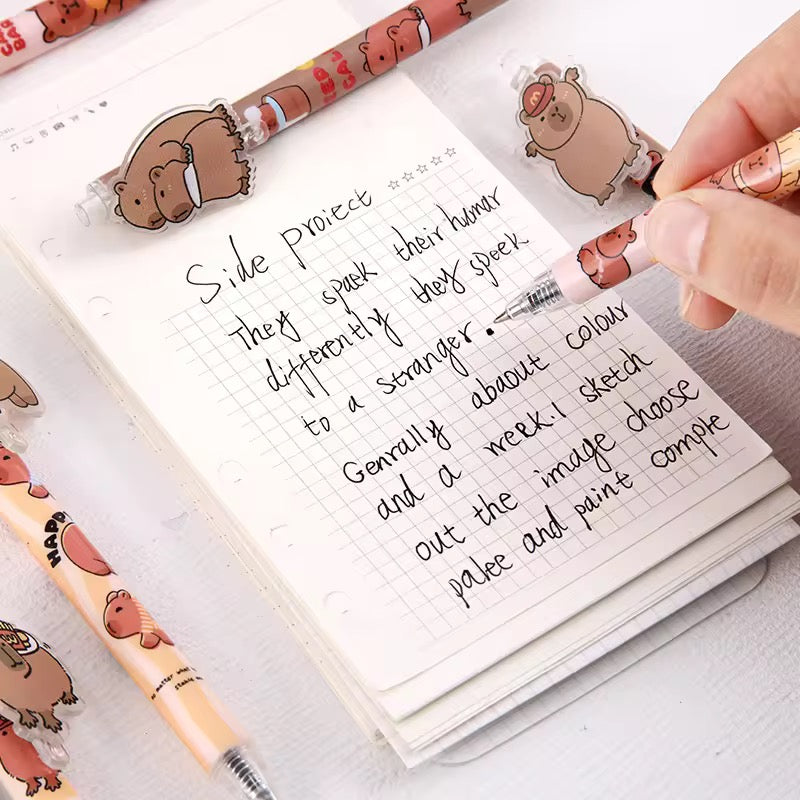 Side proiect
They spaek their humar
differently they speek
to a stranger.
Genrally abaout colour
and a week.I sketch
out the image choose
palee and paint comple
HAPP